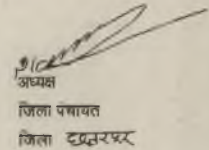 अध्यक्ष
जिला पंचायत
जिला छतरपुर